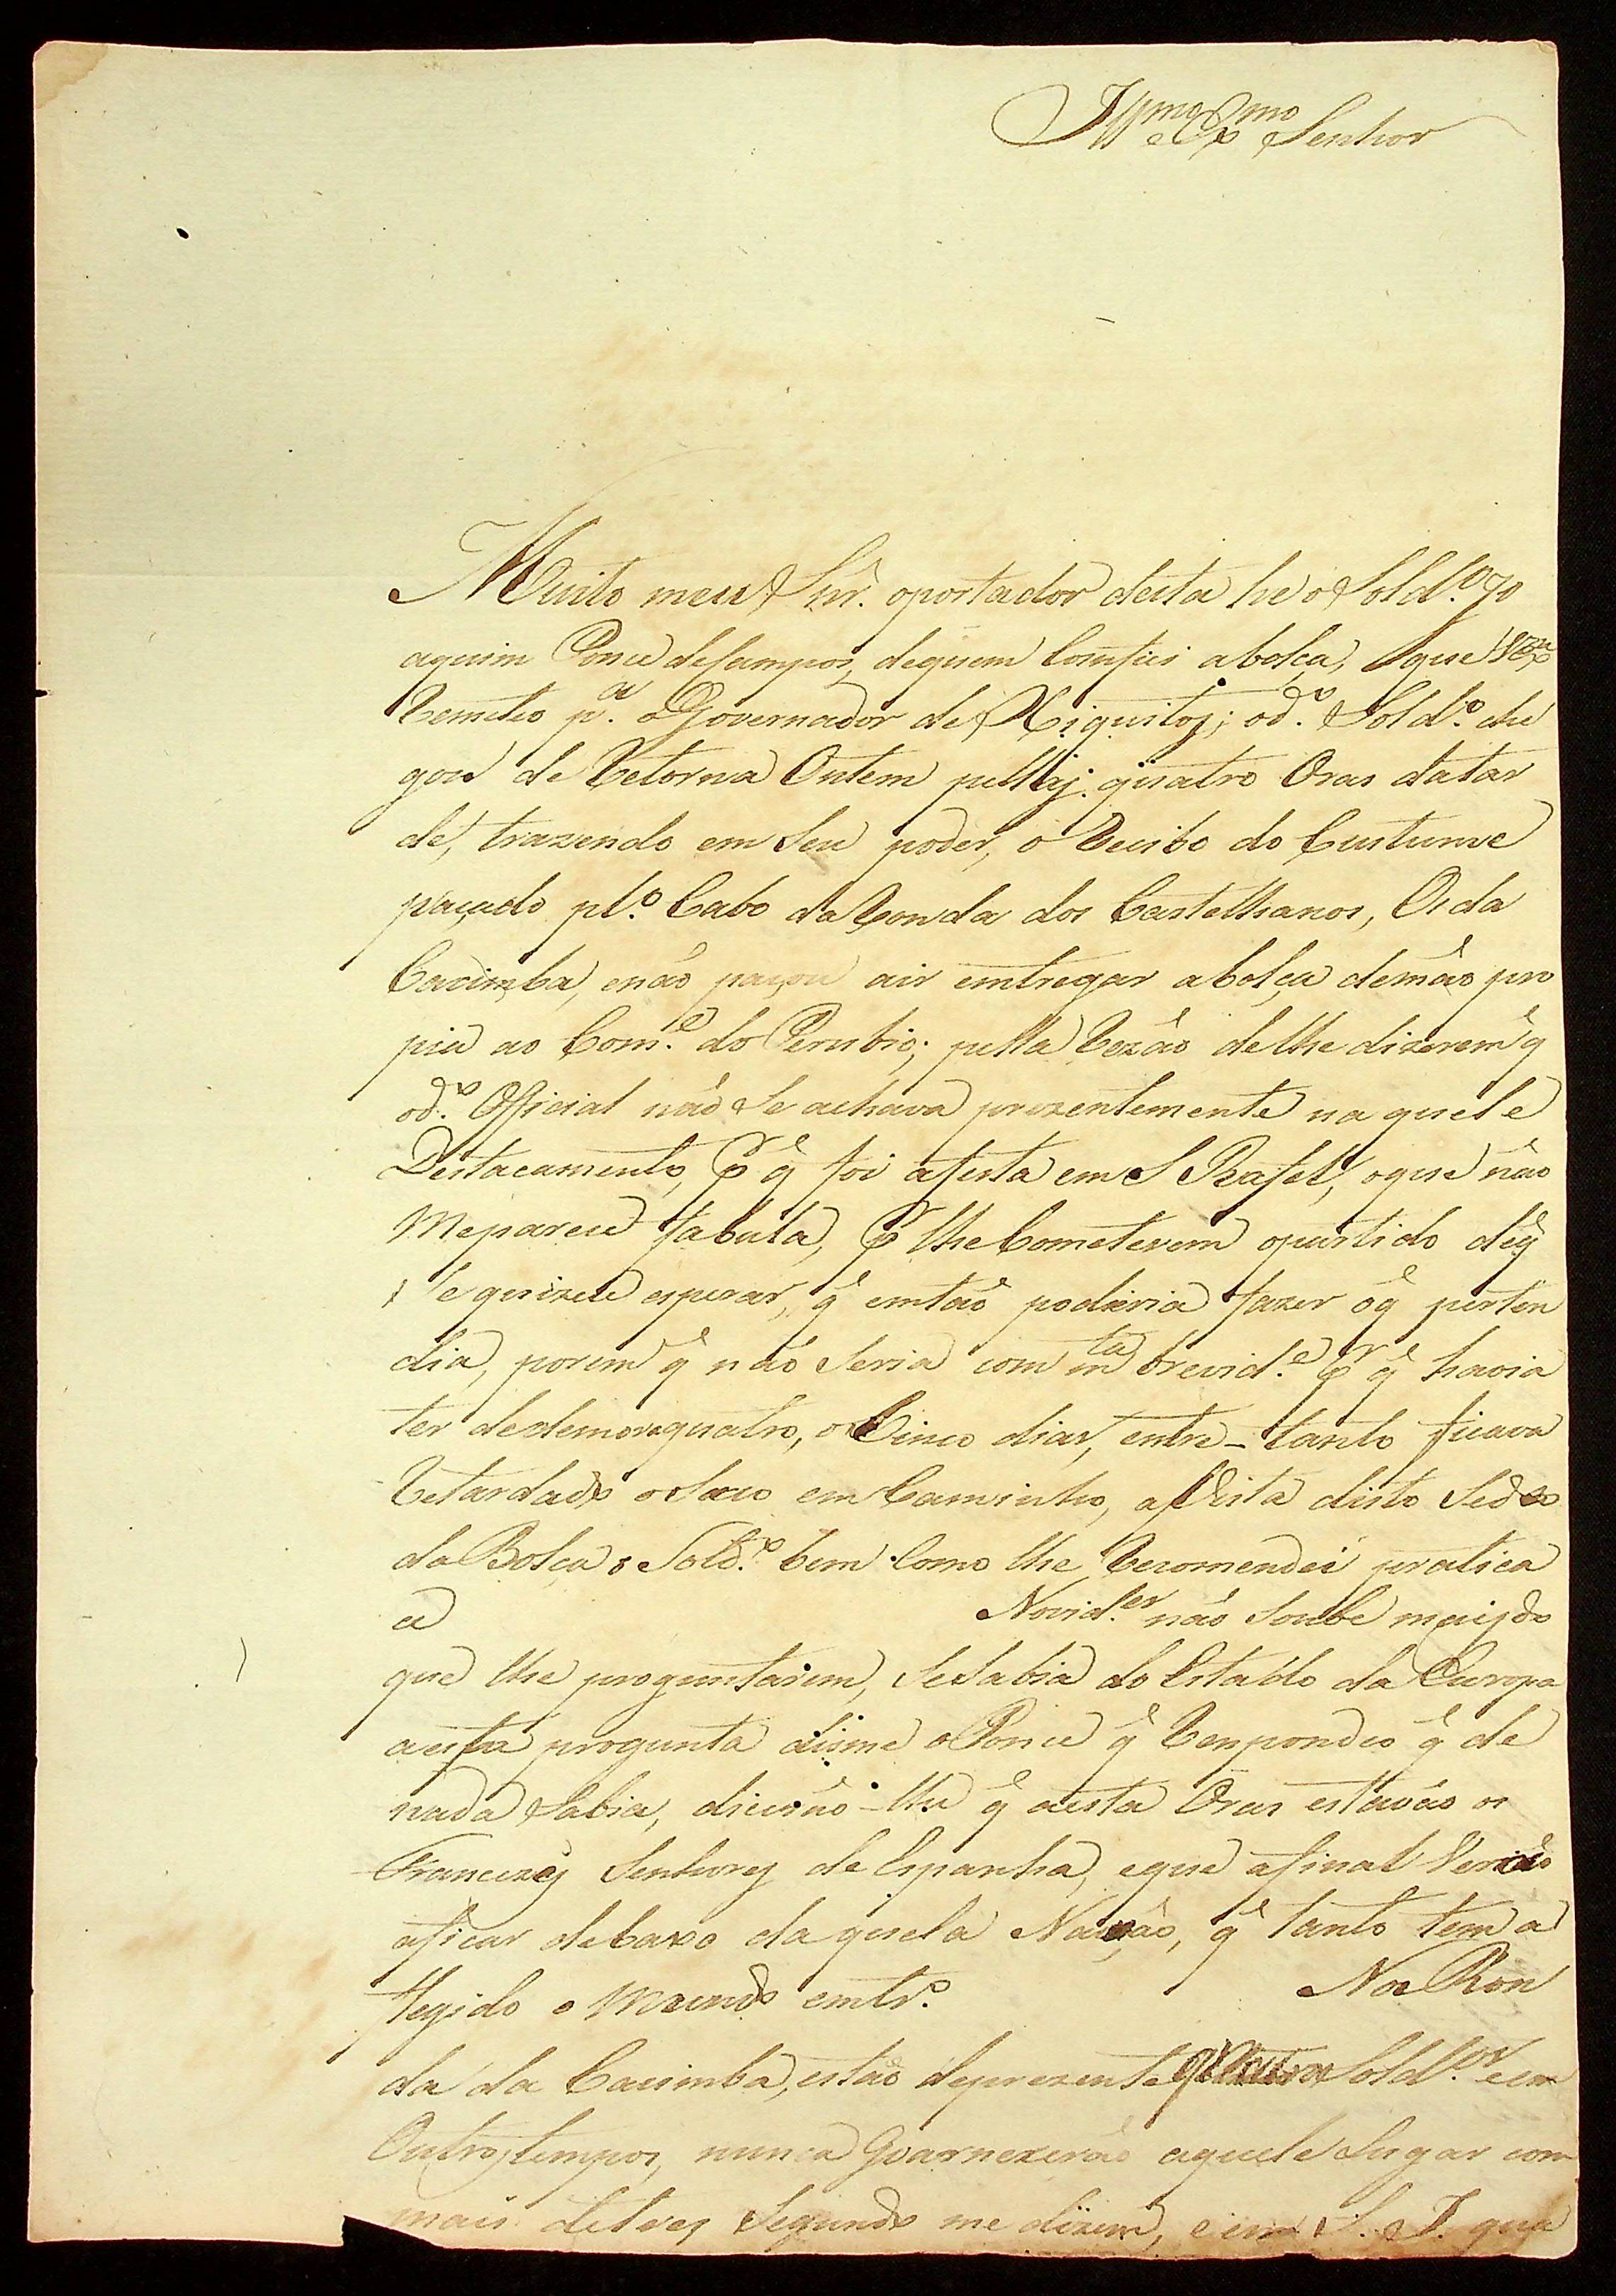 Illmo e Exmo Senhor
Muito meu Snr. oportador desta he o Sold.o Jo
aquim Ponce deCampos, dequem Comfiei abolça, que VExa
Remeteo p.a oGovernador de Xiquitos; od.o Sold.o che
gou de Retorna Ontem pellas quatro Oras datar
de, trazendo em Seu poder, o Recibo do Custume
paçado pl.o Cabo daRonda dos Castelhanos, Os da
Cacimba, enáo paçou air emtregar abolça demão pro
pia ao Com.e do Perubio; pella Rezão delhe dizerem q̃
od.o Official não Se achava prezentemente na quele
Destacamento, Pr q̃ foi afesta em S Rafel, oque não
Mepareceo fabula, Pr lhe Cometerem opartido deq̃
Se quizece esperar, q̃ emtão poderia fazer oq̃ perten
dia, porem q̃ não Seria com mta brevid.e Pr q̃ havia
ter dedemora quatro, ou Cinco dias, entre-tanto ficava
Retardado oSaco em Caminho, aVista disto Sedeo
da Bolça o Sold.o bem Como lhe Recomendei pratica
ce Novid.es não Soube mais do
que lhe proguntarem, SeSabia do Estado da Europa
aesta progunta disme oPonce q̃ Respondeo q̃ de
nada Sabia, dicerão-lhe q̃ aesta Oras estavão os
Francezes Senhores de Espanha, eque afinal Verião
aficar debaxo daquela Nação, q̃ tanto tem a
flegido o Mundo emtr.o Na Ron
da da Cacimba, estão deprezente quatro Sold.os e em
Outros tempos, nunca Goarnezerão aquele Lugar com
mais detres Segundo me dizem, e em S. J. que